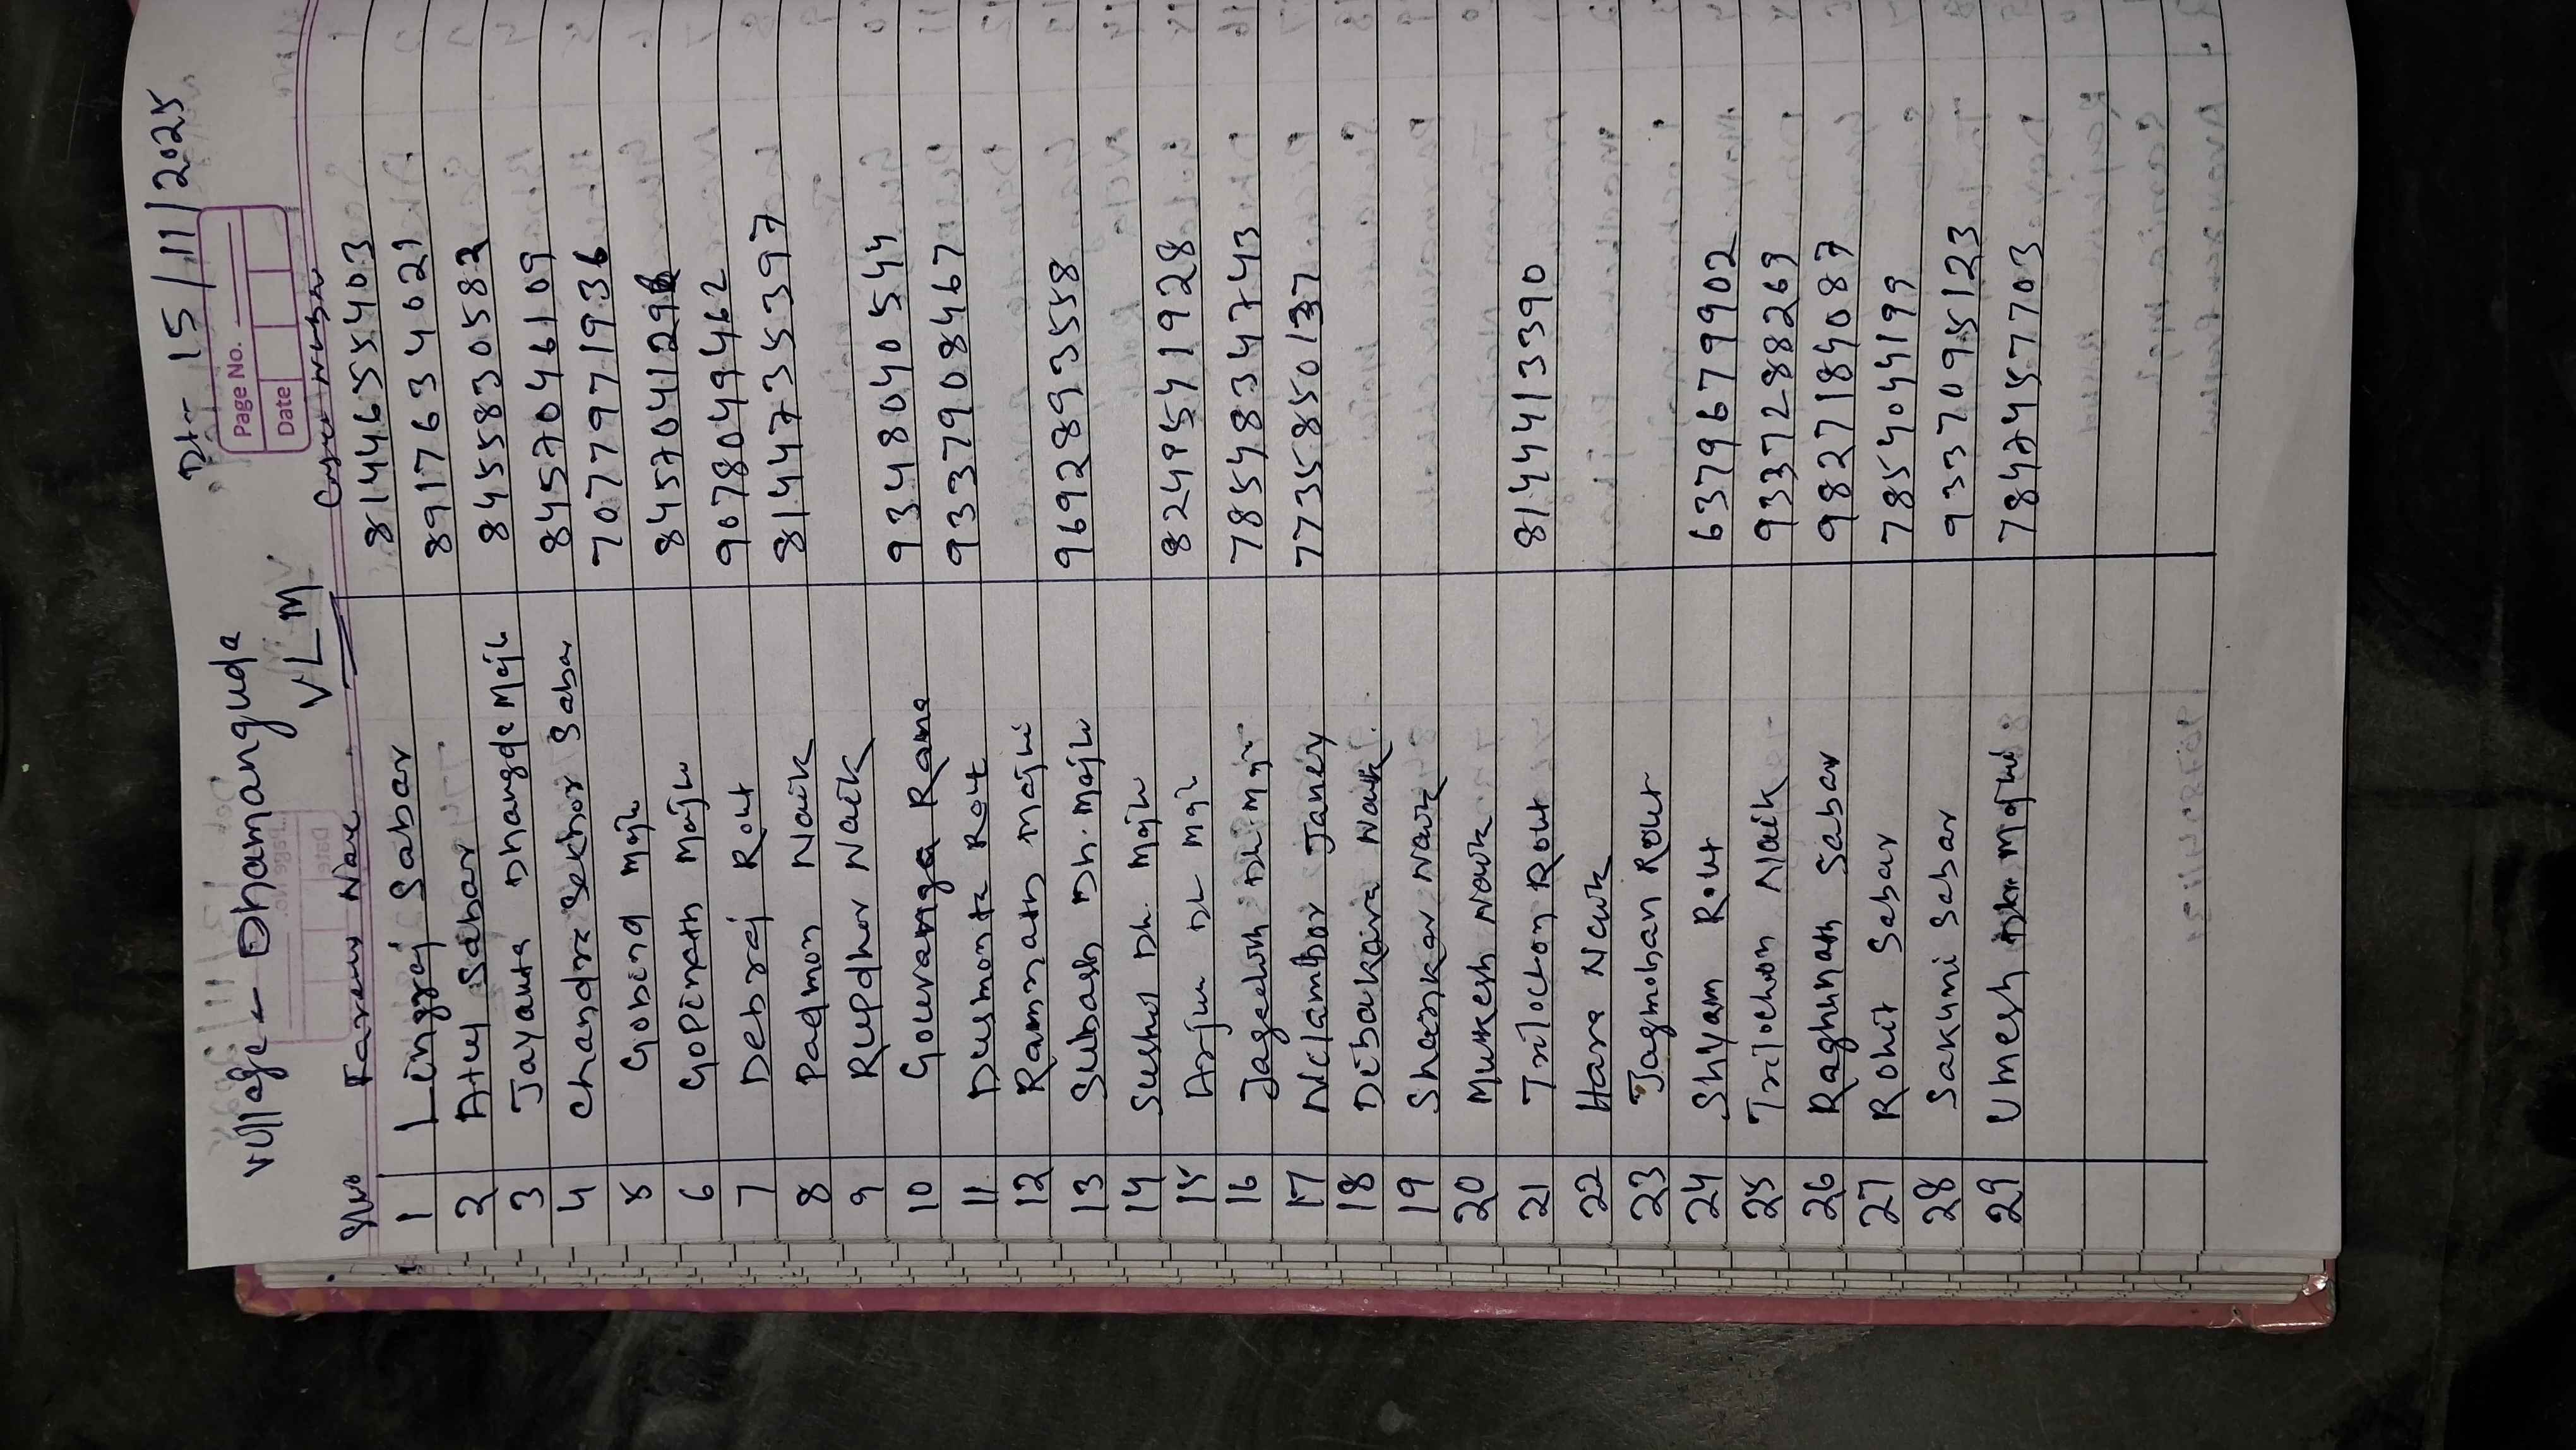 Dt - 15/11/2025
Village - Dhamanguda
VLM
Page No.
Date
Sl/No Farmer Name Contact Number
1 Lingraj Sabar 8144655403
2 Atul Sabar 8917634021
3 Jayanta Dhangda Majhi 8455830582
4 Chandra Sekhar Sabar 8457046109
5 Gobind Majhi 7077971936
6 Gopinath Majhi 845704129
7 Debraj Rout 9078049462
8 Padmon Naik 8144735397
9 Rupdhar Naik
10 Gouranga Rana 9348040544
11 Dusmonta Rout 9337908467
12 Ramnath Majhi
13 Subash Dh. Majhi 9692893558
14 Sushil Dh. Majhi
15 Arjun Dh Majhi 8249541928
16 Jagannath Dh Majhi 7854834743
17 Nilambor Janey 7735850137
18 Dibakara Naik
19 Shankar Naik
20 Mukesh Naik
21 Trilochon Rout 8144413390
22 Hara Naik
23 Jagmohan Rout
24 Shyam Rout 6379679902
25 Trilochon Naik 9337288269
26 Raghunath Sabar 9827184087
27 Rohit Sabar 7854044199
28 Sakuni Sabar 9337095123
29 Umesh Dh. Majhi 7847457703